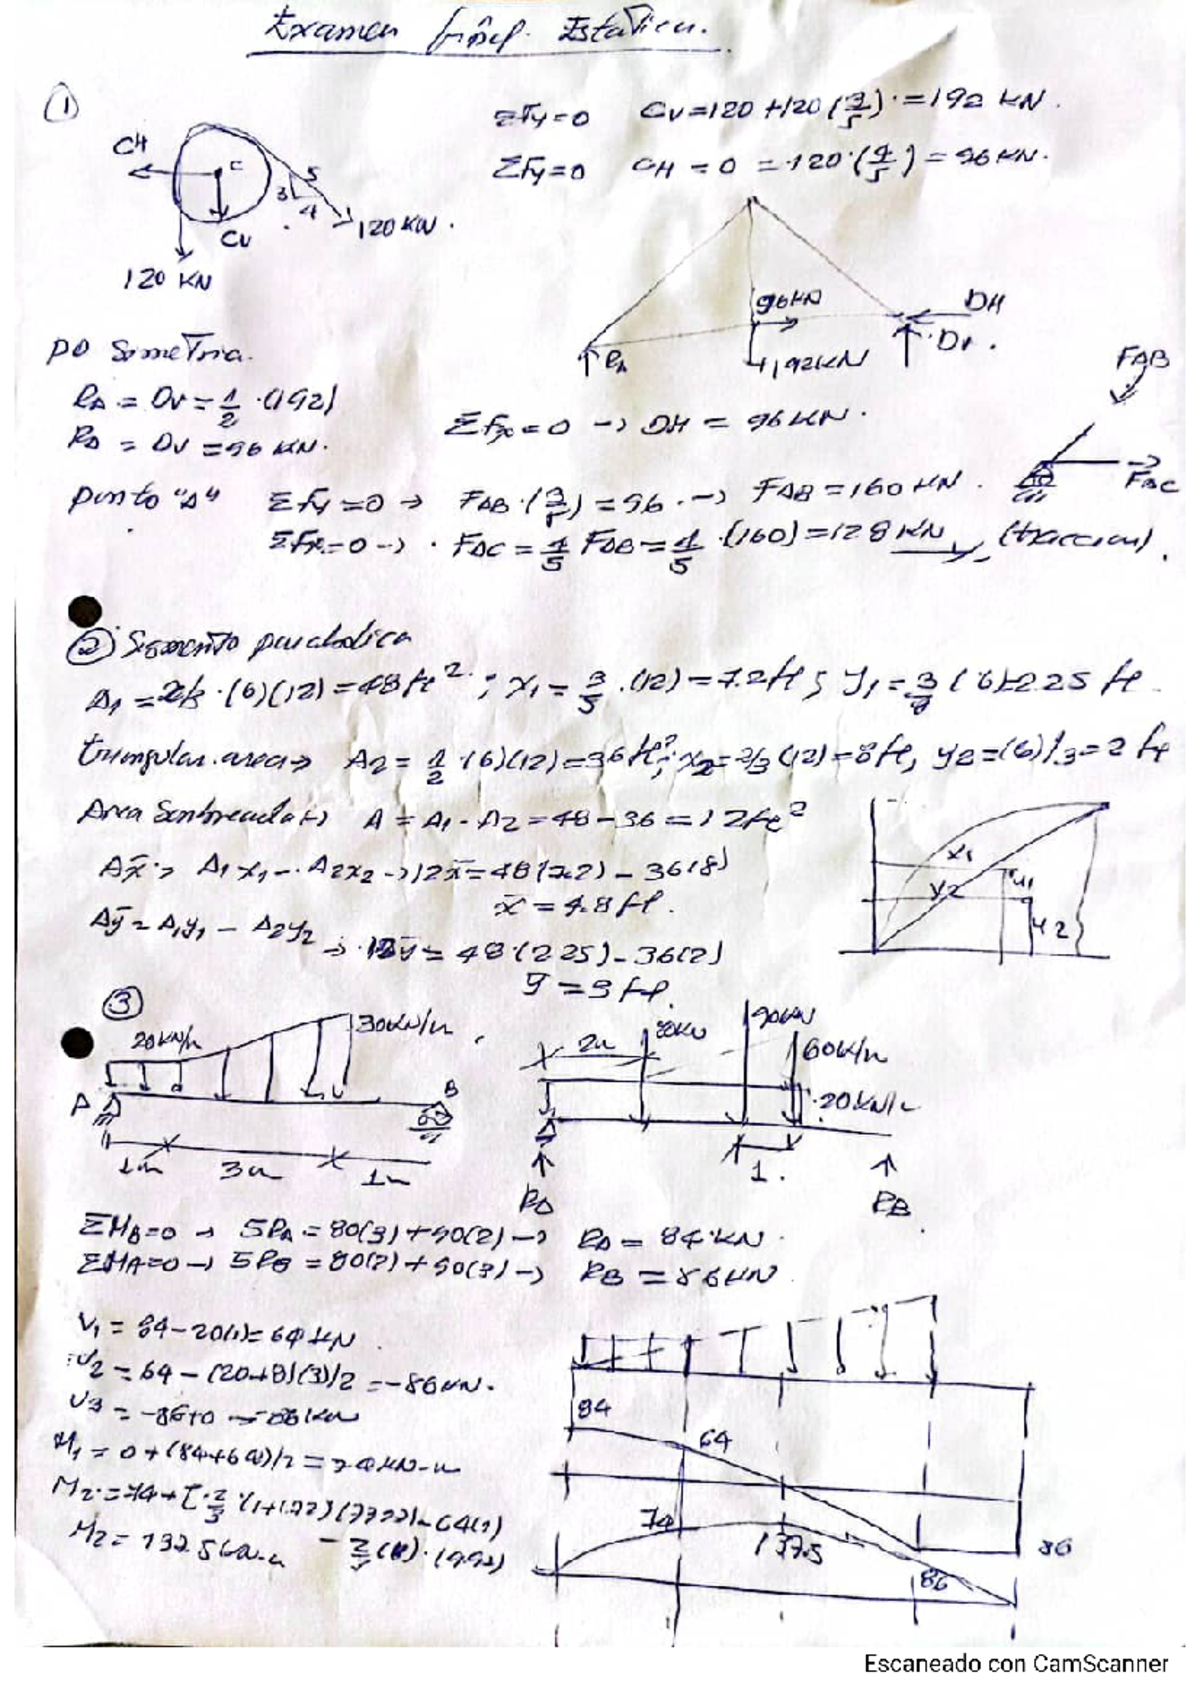 Examen final. Estática.
1
ΣFy=0 CV=120+120(3/5)=192 KN.
ΣFy=0 CH=0=120·(4/5)=96 KN.
CH
C
5
3
4
CV
120 KN.
120 KN
96KN
DH
RA
192KN
Dv.
FAB
FAC
po Simetria.
RA = DV = 1/2·(192)
RA = DV = 96 KN.
ΣFx=0 → DH = 96 KN.
punto "A" ΣFy=0 → FAB·(3/5)=96 → FAB=160 KN.
ΣFx=0 → FAC = 4/5 FAB = 4/5·(160) = 128 KN (traccion).
2 Segmento parabolica
A1 = 2/3·(6)(12)=48 ft²; x1 = 3/5·(12)=7.2ft; y1 = 3/8(6)=2.25 ft.
triangular area → A2 = 1/2·(6)(12)=36ft²; x2=2/3(12)=8ft, y2=(6)/3=2 ft
Area Sombreada → A = A1-A2 = 48-36 = 12ft²
Ax̄ = A1x1 - A2x2 → 12x̄ = 48(7.2) - 36(8)
x̄ = 4.8 ft.
Aȳ = A1y1 - A2y2 → 12ȳ = 48·(2.25) - 36(2)
ȳ = 3 ft.
x1
y1
y2
3
20KN/m
A
B
1m
3m
1m
2m
80KN
90KN
60K/m
20KN/m
1.
RA
RB
ΣMB=0 → 5RA = 80(3)+90(2) → RA = 84 KN.
ΣMA=0 → 5RB = 80(2)+90(3) → RB = 86 KN
V1 = 84-20(1) = 64 KN
V3 = -86+0 = -86KN
84
64
74
137.5
86
86
Escaneado con CamScanner